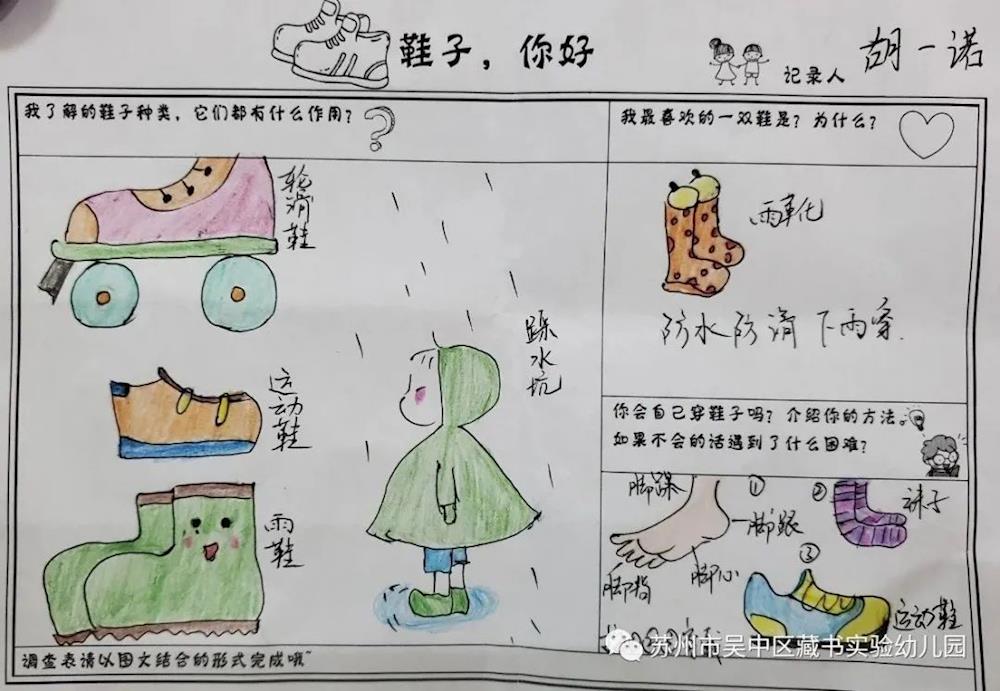 鞋子，你好
记录人 胡一诺
我了解的鞋子种类，它们都有什么作用？
轮滑鞋
运动鞋
雨鞋
踩水坑
我最喜欢的一双鞋是？为什么？
雨革化
防水防滑 下雨穿.
你会自己穿鞋子吗？介绍你的方法。
如果不会的话遇到了什么困难？
脚踝
①
脚跟
脚心
脚指
②
袜子
③
运动鞋
调查表请以图文结合的形式完成哦~
苏州市吴中区藏书实验幼儿园